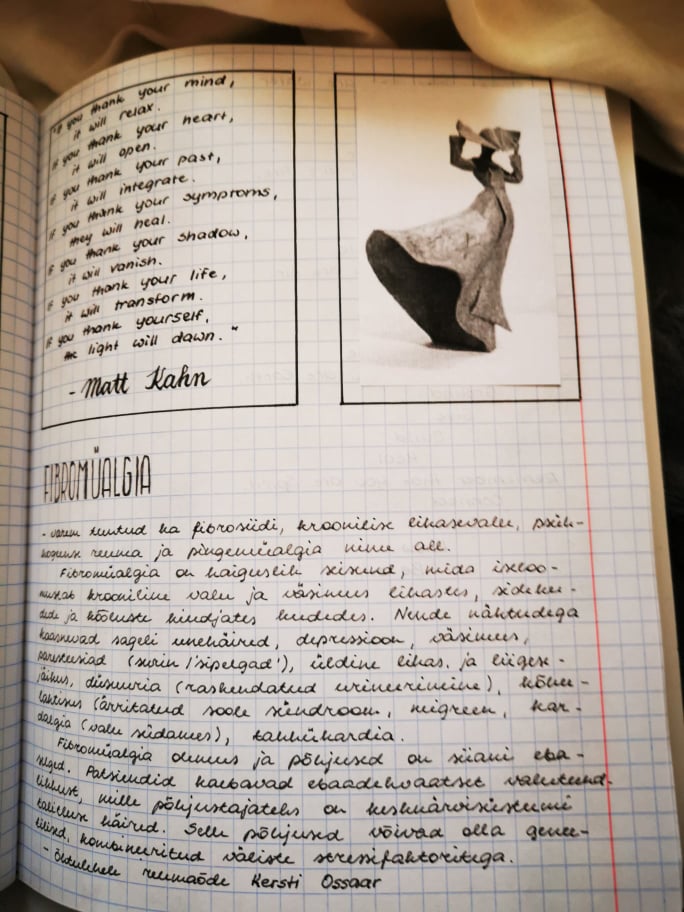 "If you thank your mind,
it will relax.
If you thank your heart,
it will open.
If you thank your past,
it will integrate.
If you thank your symptoms,
they will heal.
If you thank your shadow,
it will vanish.
If you thank your life,
it will transform.
If you thank yourself,
the light will dawn."
- Matt Kahn
FIBROMÜALGIA
- varem tuntud ka fibrosiidi, kroonilise lihasevalu, psüh-
hogeense reuma ja pingemüalgia nime all.
Fibromüalgia on haiguslik seisund, mida iseloo-
mustab krooniline valu ja väsimus lihastes, sideku-
dede ja kõõluste kudedes. Nende nähtudega
kaasnevad sageli unehäired, depressioon, väsimus,
paresteesiad (surin/'sipelgad'), üldine lihas- ja liiges-
jäikus, düsuuria (raskendatud urineerimine), kõhu-
lahtisus (ärritatud soole sündroom, migreen, kar-
dalgia (valu südames), tahhükardia.
Fibromüalgia olemus ja põhjused on siiani eba-
selged. Patsiendid kaebavad ebaadekvaatset valutund-
likkust, mille põhjustajateks on kesknärvisüsteemi
talitluse häired. Selle põhjused võivad olla genee-
tilised, kombineeritud väliste stressifaktoritega.
- Õhtulehele reumaõde Kersti Ossaar